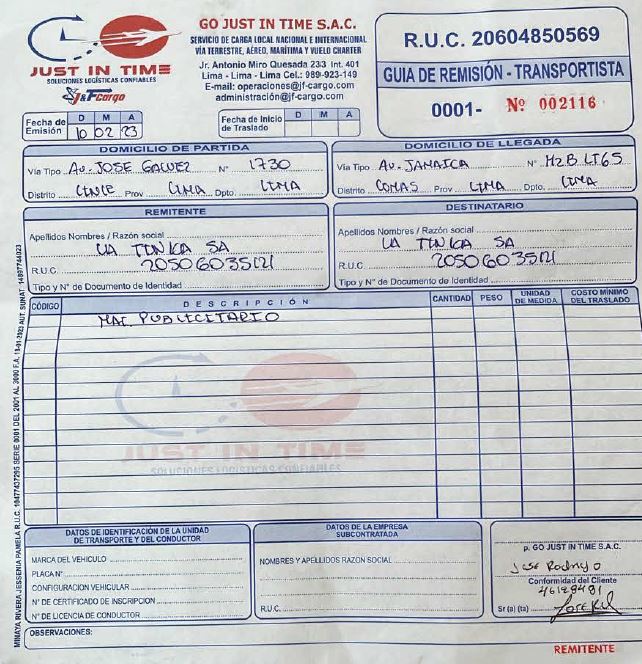 JUST IN TIME
SOLUCIONES LOGÍSTICAS CONFIABLES
J&F Cargo
GO JUST IN TIME S.A.C.
SERVICIO DE CARGA LOCAL NACIONAL E INTERNACIONAL
VÍA TERRESTRE, AÉREO, MARÍTIMA Y VUELO CHARTER
Jr. Antonio Miro Quesada 233 Int. 401
Lima - Lima - Lima Cel.: 989-923-149
E-mail: operaciones@jf-cargo.com
administración@jf-cargo.com
R.U.C. 20604850569
GUIA DE REMISIÓN - TRANSPORTISTA
0001- Nº 002116
Fecha de Emisión D M A
10 02 23
Fecha de Inicio de Traslado D M A
DOMICILIO DE PARTIDA
Vía Tipo AV. JOSE GALVEZ Nº 1730
Distrito LINCE Prov LIMA Dpto. LIMA
DOMICILIO DE LLEGADA
Vía Tipo AV. JAMAICA Nº MZB LT65
Distrito COMAS Prov LIMA Dpto. LIMA
REMITENTE
Apellidos Nombres / Razón social
LA TINKA SA
R.U.C. 20506035121
Tipo y Nº de Documento de Identidad
DESTINATARIO
Apellidos Nombres / Razón social
LA TINKA SA
R.U.C. 20506035121
Tipo y Nº de Documento de Identidad
CÓDIGO DESCRIPCIÓN CANTIDAD PESO UNIDAD DE MEDIDA COSTO MÍNIMO DEL TRASLADO
MAT. PUBLICITARIO
JUST IN TIME
SOLUCIONES LOGISTICAS CONFIABLES
MINAYA RIVERA JESSENIA PAMELA R.U.C. 10477437295 SERIE 0001 DEL 2001 AL 3000 F.A. 13-01-2023 AUT. SUNAT 14897744023
DATOS DE IDENTIFICACIÓN DE LA UNIDAD DE TRANSPORTE Y DEL CONDUCTOR
MARCA DEL VEHICULO
PLACA Nº
CONFIGURACION VEHICULAR
Nº DE CERTIFICADO DE INSCRIPCION
Nº DE LICENCIA DE CONDUCTOR
DATOS DE LA EMPRESA SUBCONTRATADA
NOMBRES Y APELLIDOS RAZON SOCIAL
R.U.C.
p. GO JUST IN TIME S.A.C.
Jose Rodrigo
Conformidad del Cliente
46128481
Sr (a) (ta)
OBSERVACIONES:
REMITENTE